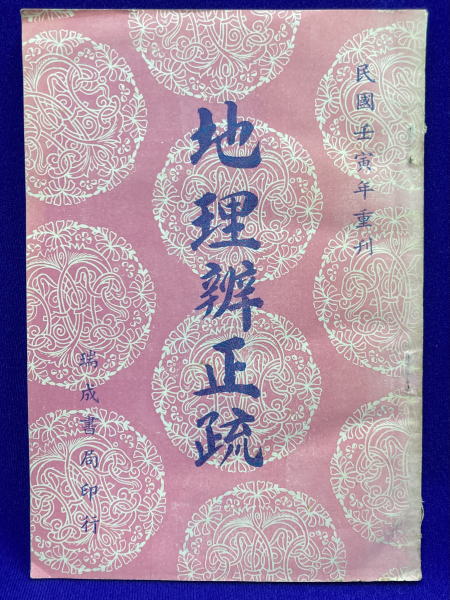 民國壬寅年重刊
地理辨正疏
瑞成書局印行